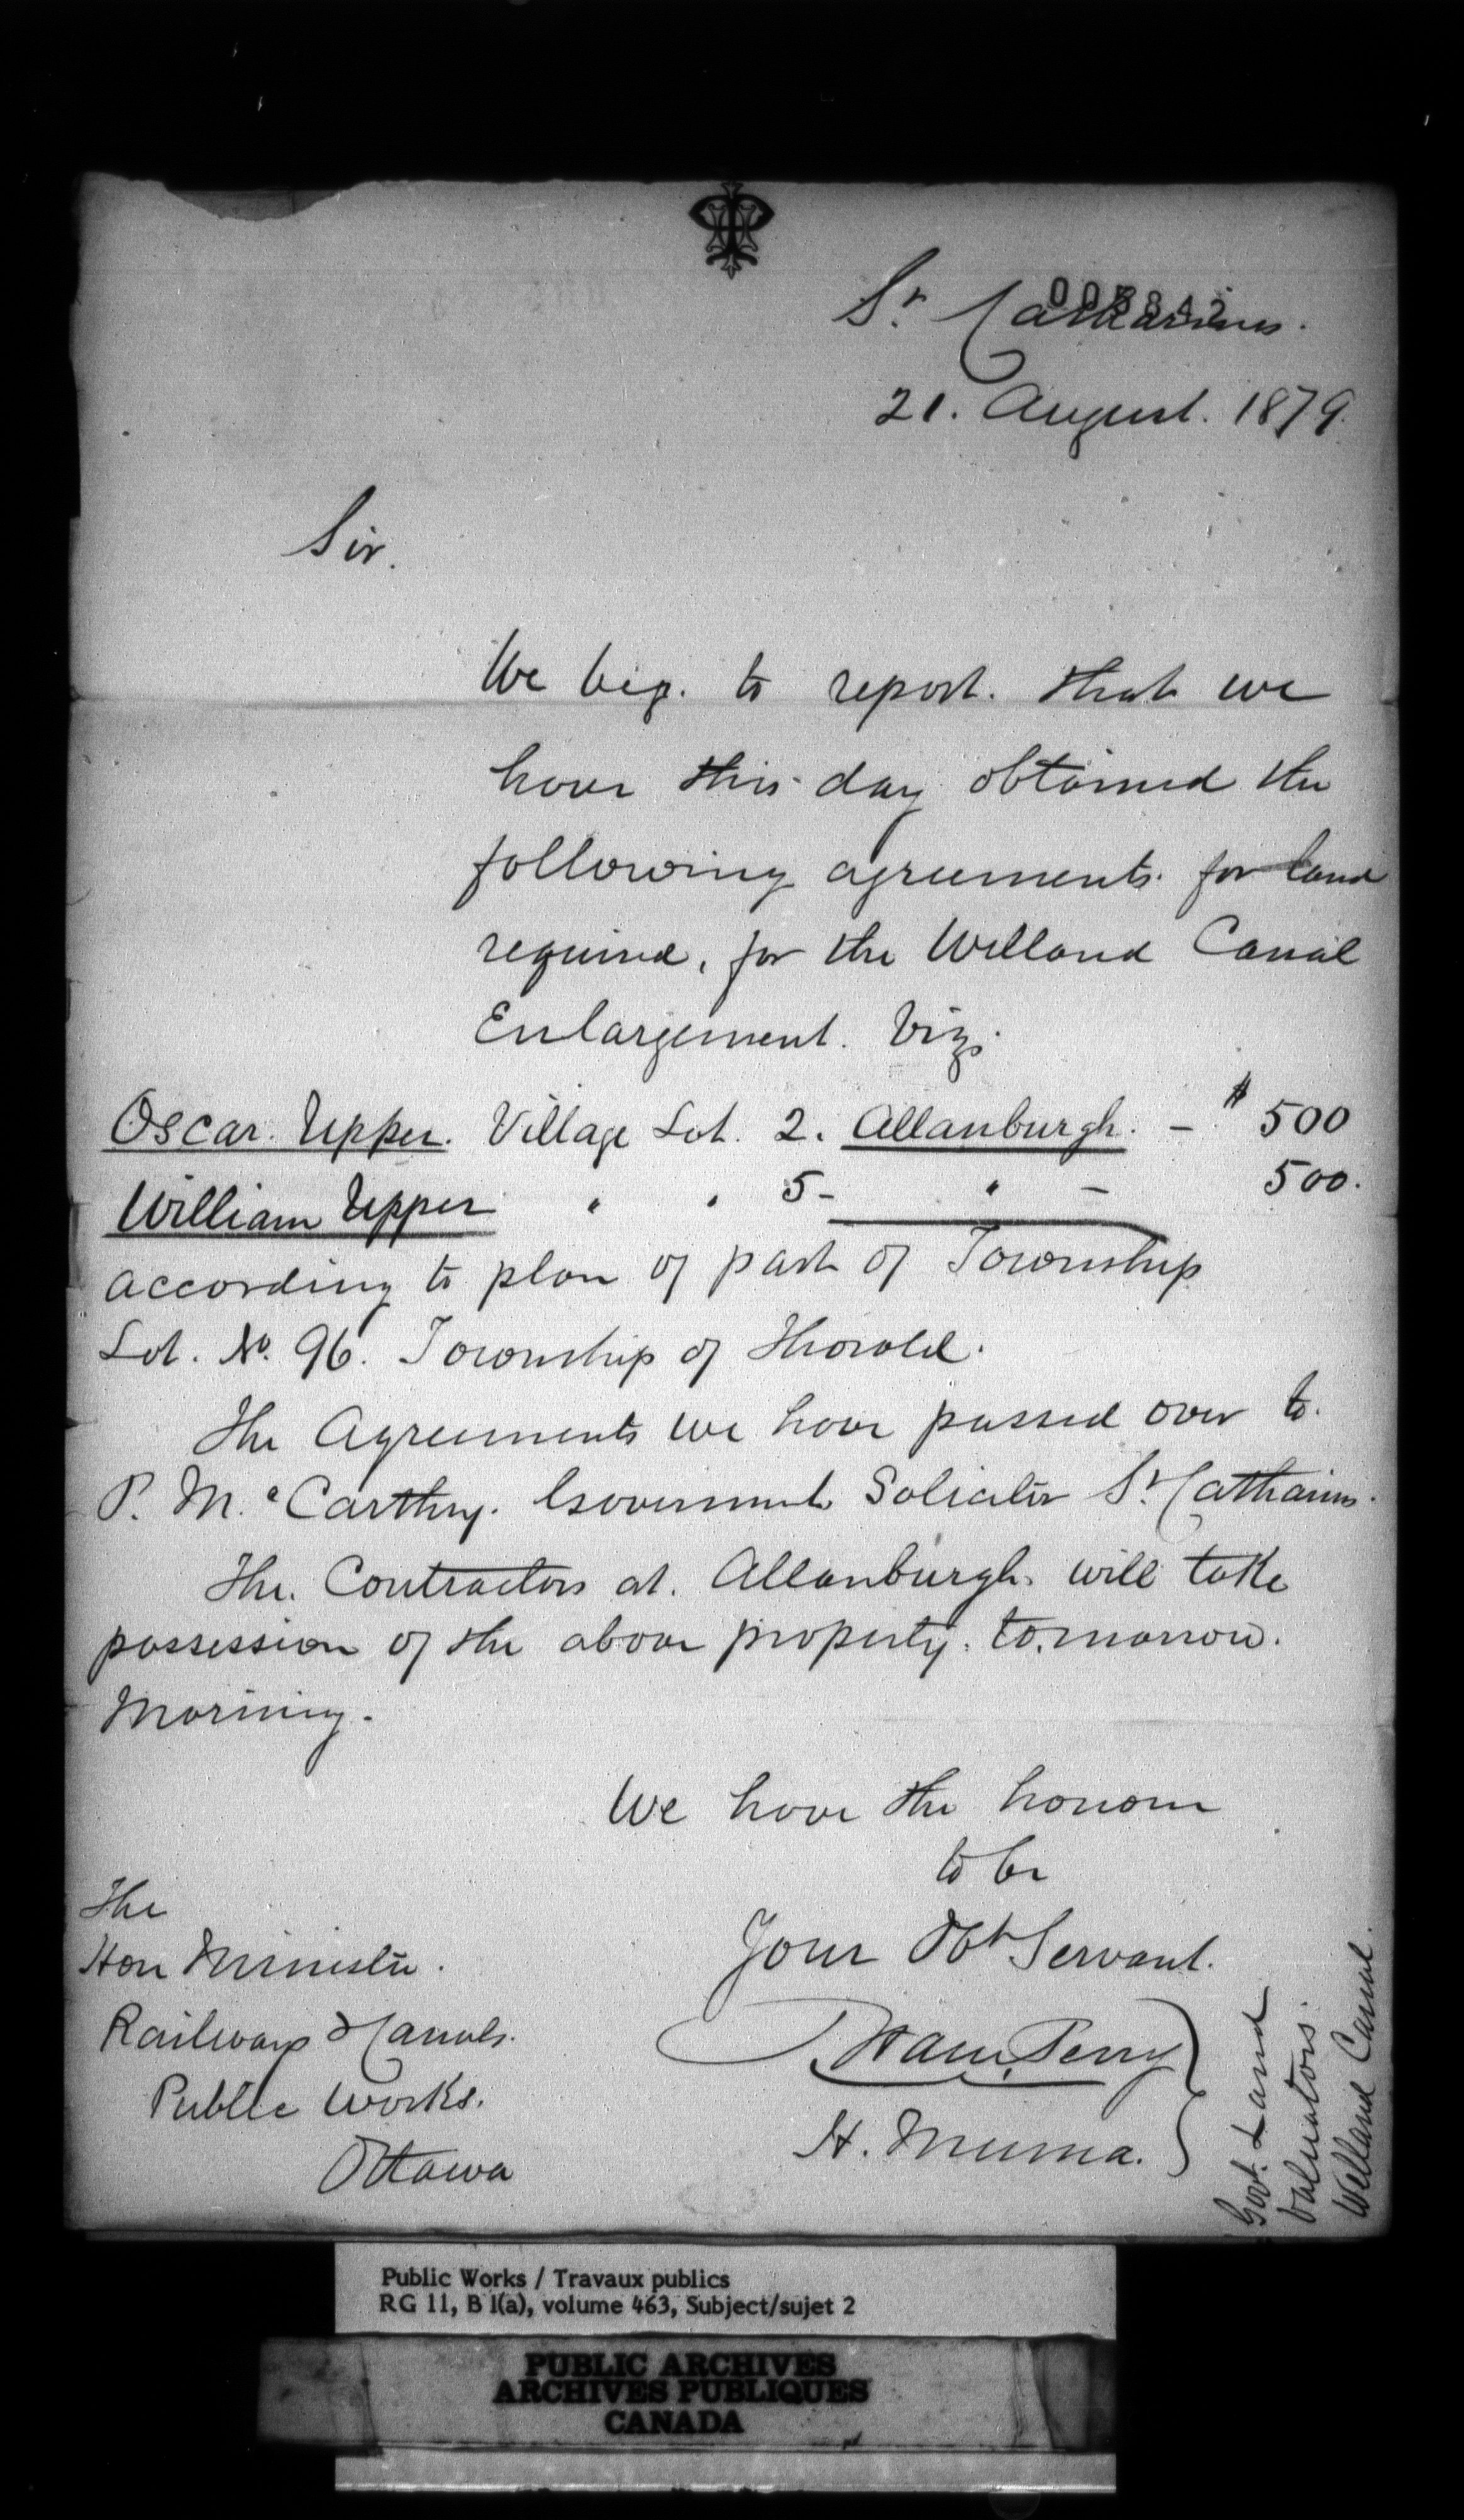 St. Catharines.
21. August. 1879.
Sir.
We beg. to report. that we
have this day obtained the
following agreements. for land
required, for the Welland Canal
Enlargement. Viz.
Oscar. Upper. Village Lot. 2. Allanburgh. - $ 500
William Upper " " 5 - " - 500.
according to plan of part of Township
Lot. No. 96. Township of Thorold.
The Agreements we have passed over to.
P. McCarthy. Government Solicitor St. Catharines.
The. Contractors at. Allanburgh. will take
possession of the above property. to.morrow.
Morning.
We have the honour
to be
Your Obt Servant.
Ham. Perry
H. Muma.
Govt. Land
Valuators.
Welland Canal.
The
Hon Minister.
Railways & Canals.
Public Works.
Ottawa
Public Works / Travaux publics
RG 11, B 1(a), volume 463, Subject/sujet 2
PUBLIC ARCHIVES
ARCHIVES PUBLIQUES
CANADA